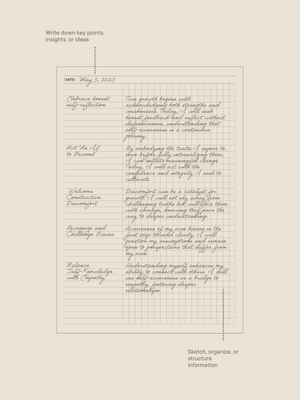 Write down key points,
insights, or ideas
DATE: May 5, 2025
Embrace honest
self-reflection
True growth begins with
acknowledging both strengths and
weaknesses. Today, I will seek
honest feedback and reflect without
defensiveness, understanding that
self-awareness is a continuous
journey.
Act "As If"
to Persist
By embodying the traits I aspire to,
even before fully internalizing them,
I can create meaningful change.
Today, I will act with the
confidence and integrity I seek to
cultivate.
Welcome
Constructive
Discomfort
Discomfort can be a catalyst for
growth. I will not shy away from
challenging truths but will face them
with courage, knowing they pave the
way to deeper understanding.
Recognize and
Challenge Biases
Awareness of my own biases is the
first step toward clarity. I will
question my assumptions and remain
open to perspectives that differ from
my own.
Balance
Self-Knowledge
with Empathy
Understanding myself enhances my
ability to connect with others. I will
use self-awareness as a bridge to
empathy, fostering deeper
relationships.
Sketch, organize, or
structure
information